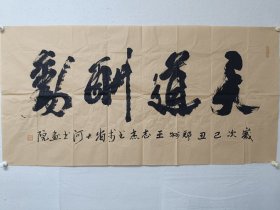 天道酬勤
歲次己丑 王志杰 大河 院